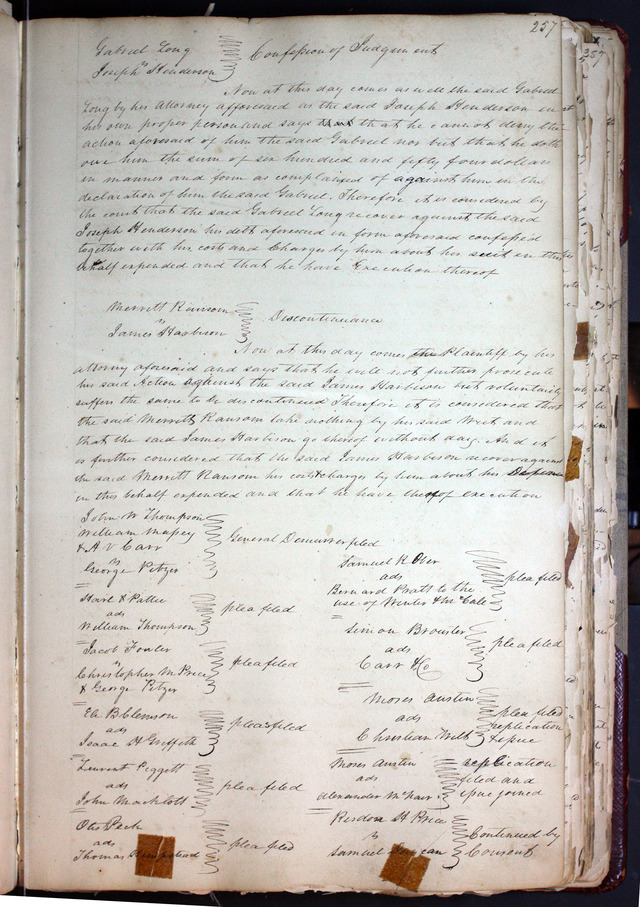 257
Gabriel Long
vs
Joseph Henderson
Confession of Judgment
Now at this day comes as well the said Gabriel
Long by his Attorney afforesaid as the said Joseph Henderson in
his own proper person and says that he cannot deny the
action aforesaid of him the said Gabriel nor but that he doth
owe him the sum of six hundred and fifty four dollars
in manner and form as complained of against him in the
declaration of him the said Gabriel. Therefore it is considered by
the court that the said Gabriel Long recover against the said
Joseph Henderson his debt aforesaid in form aforesaid confessed
together with his costs and Charges by him about his suit in this
behalf expended and that he have Execution thereof
Merritt Ransom
vs
James Harbison
Discontinuance
Now at this day comes the Plaintiff by his
attorney aforesaid and says that he will not further prosecute
his said Action against the said James Harbison but voluntarily
suffers the same to be discontinued Therefore it is considered that
the said Merritt Ransom take nothing by his said Writ and
that the said James Harbison go thereof without day. And it
is further considered that the said James Harbison recover against
the said Merritt Ransom his costs & charges by him about his Defence
in this behalf expended and that he have thereof execution
John W Thompson
William Massey
& A V Carr
vs
George Pitzer
General Demurrer filed
Hart & Pattie
ads
William Thompson
plea filed
Jacob Fowler
vs
Christopher M Price
& George Pitzer
plea filed
Eli B Clemson
ads
Isaac H Griffith
plea filed
Laurent Peggett
ads
John Macklott
plea filed
Otis Peck
ads
Thomas Hempstead
plea filed
Samuel R Ober
ads
Bernard Pratt to the
use of Winter & McCale
plea filed
Simon Brouster
ads
Carr & C
plea filed
Moses Austin
ads
Christian Wilt
plea filed
replication
& issue
Moses Austin
ads
Alexander McNair
replication
filed and
issue joined
Risdon H Price
vs
Samuel
Continued by
Consent